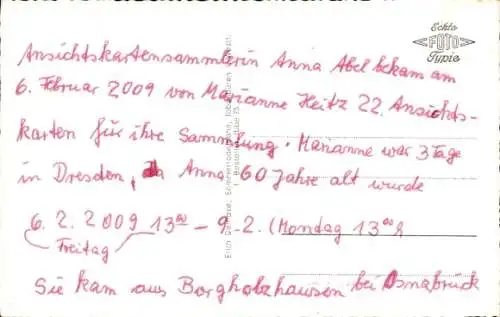 Echte
FOTO
Typie
Ansichtskartensammlerin Anna Abel bekam am
6. Februar 2009 von Marianne Heitz 22. Ansichts-
karten für ihre Sammlung. Marianne war 3 Tage
in Dresden, da Anna 60 Jahre alt wurde
6. 2. 2009 13⁰⁰ – 9. 2. (Montag 13⁰⁰)
Freitag
Sie kam aus Borgholzhausen bei Osnabrück